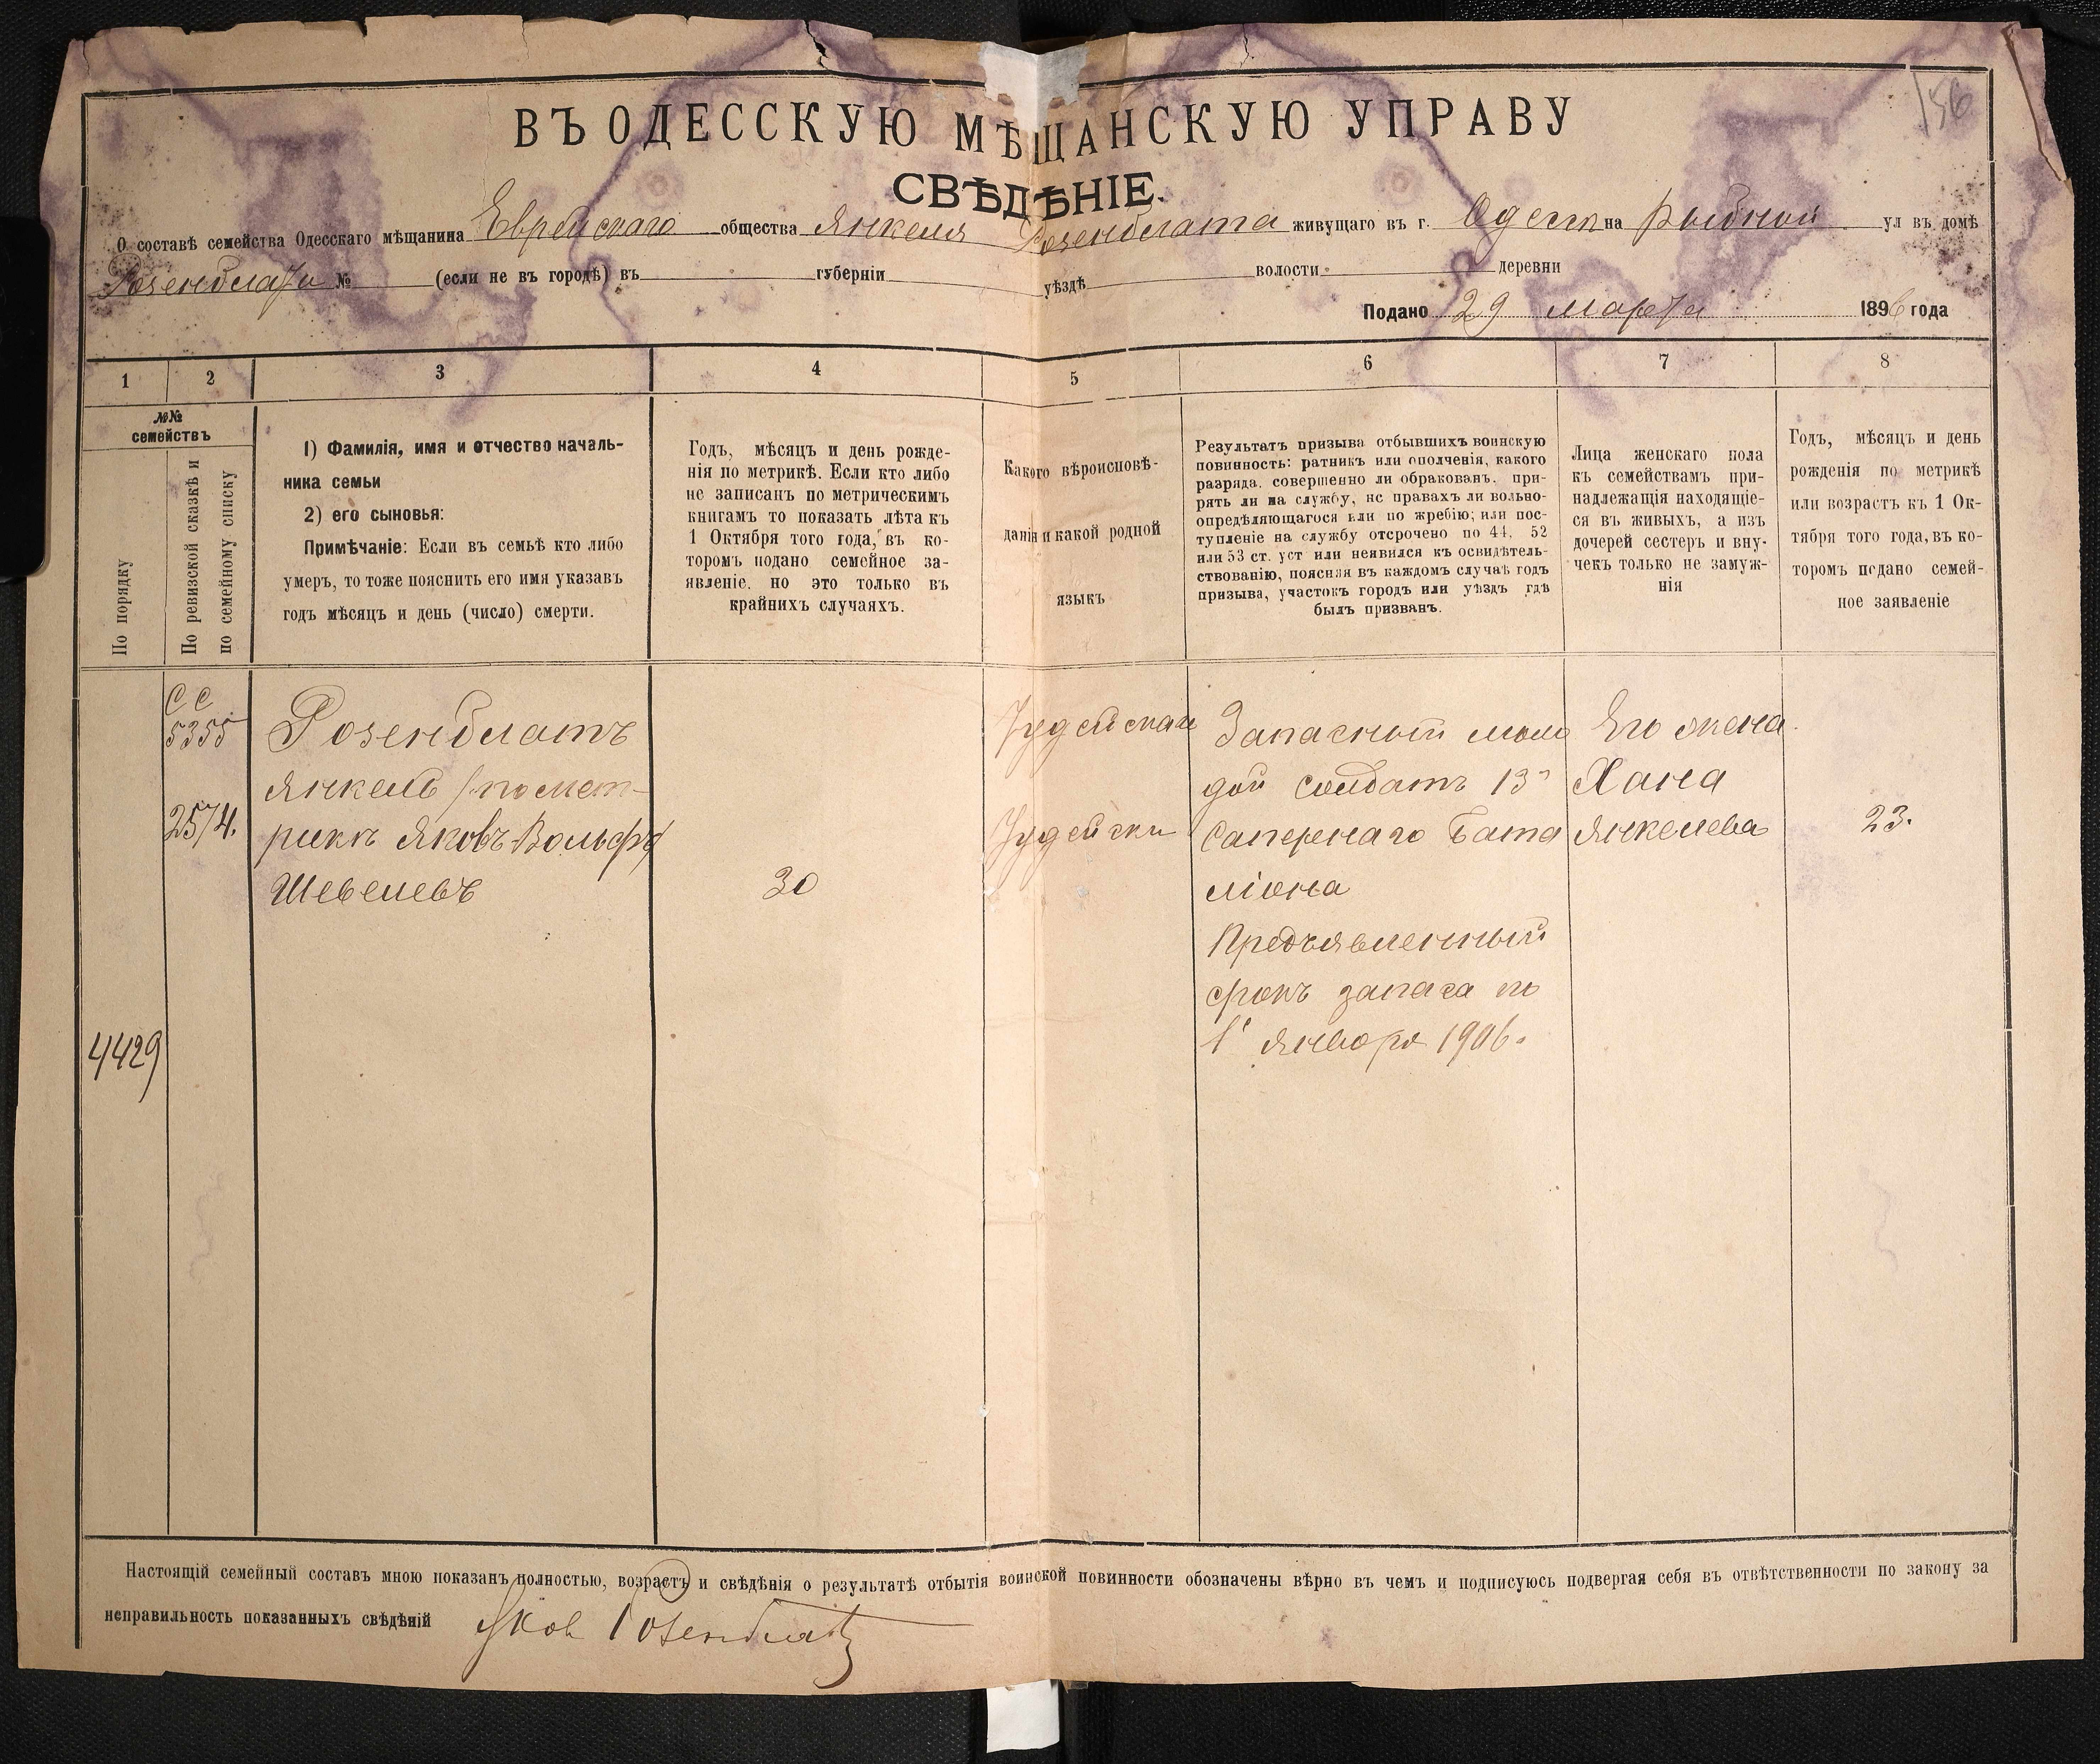 156
ВЪ ОДЕССКУЮ МѢЩАНСКУЮ УПРАВУ
СВѢДѢНІЕ.
О составѣ семейства Одесскаго мѣщанина Еврейскаго общества Янкеля Розенблата живущаго въ г. Одессѣ на Рыбной ул въ домѣ
Розенблата № (если не въ городѣ) въ губерніи уѣздѣ волости деревни
Подано 29 Марта 1896 года
1 2 3 4 5 6 7 8
№№
семействъ
По порядку
По ревизской сказкѣ и
по семейному списку
1) Фамилія, имя и отчество началь-
ника семьи
2) его сыновья:
Примѣчаніе: Если въ семьѣ кто либо
умеръ, то тоже пояснить его имя указавъ
годъ мѣсяцъ и день (число) смерти.
Годъ, мѣсяцъ и день рожде-
нія по метрикѣ. Если кто либо
не записанъ по метрическимъ
книгамъ то показать лѣта къ
1 Октября того года, въ ко-
торомъ подано семейное за-
явленіе. но это только въ
крайнихъ случаяхъ.
Какого вѣроисповѣ-
данія и какой родной
языкъ
Результатъ призыва отбывшихъ воинскую
повинность: ратникъ или ополченія, какого
разряда. совершенно ли обракованъ. при-
рять ли на службу, нс правахъ ли вольно-
опредѣляющагося или по жребію; или пос-
тупленіе на службу отсрочено по 44. 52
или 53 ст. уст или неявился къ освидѣтель-
ствованію, поясняя въ каждомъ случаѣ годъ
призыва, участокъ городъ или уѣздъ гдѣ
былъ призванъ.
Лица женскаго пола
къ семействамъ при-
надлежащія находящіе-
ся въ живыхъ, а изъ
дочерей сестеръ и вну-
чекъ только не замуж-
нія
Годъ, мѣсяцъ и день
рожденія по метрикѣ
или возрастъ къ 1 Ок-
тября того года, въ ко-
торомъ подано семей-
ное заявленіе
4429
СС
5355
2574.
Розенблатъ
Янкель (по мет-
рикѣ Яковъ-Вольфъ)
Шевелевъ
30
Іудейскаго
Іудейски
Запасный моло
дой солдатъ 13
Сапернаго Бата
ліона
Предъявленный
срокъ запаса по
1 Января 1906.
Его жена
Хана
Янкелева
23.
Настоящій семейный составъ мною показанъ полностью, возрастъ и свѣдѣнія о результатѣ отбытія воинской повинности обозначены вѣрно въ чемъ и подписуюсь подвергая себя въ отвѣтственности по закону за
неправильность показанныхъ свѣдѣній Яков Розенблатъ